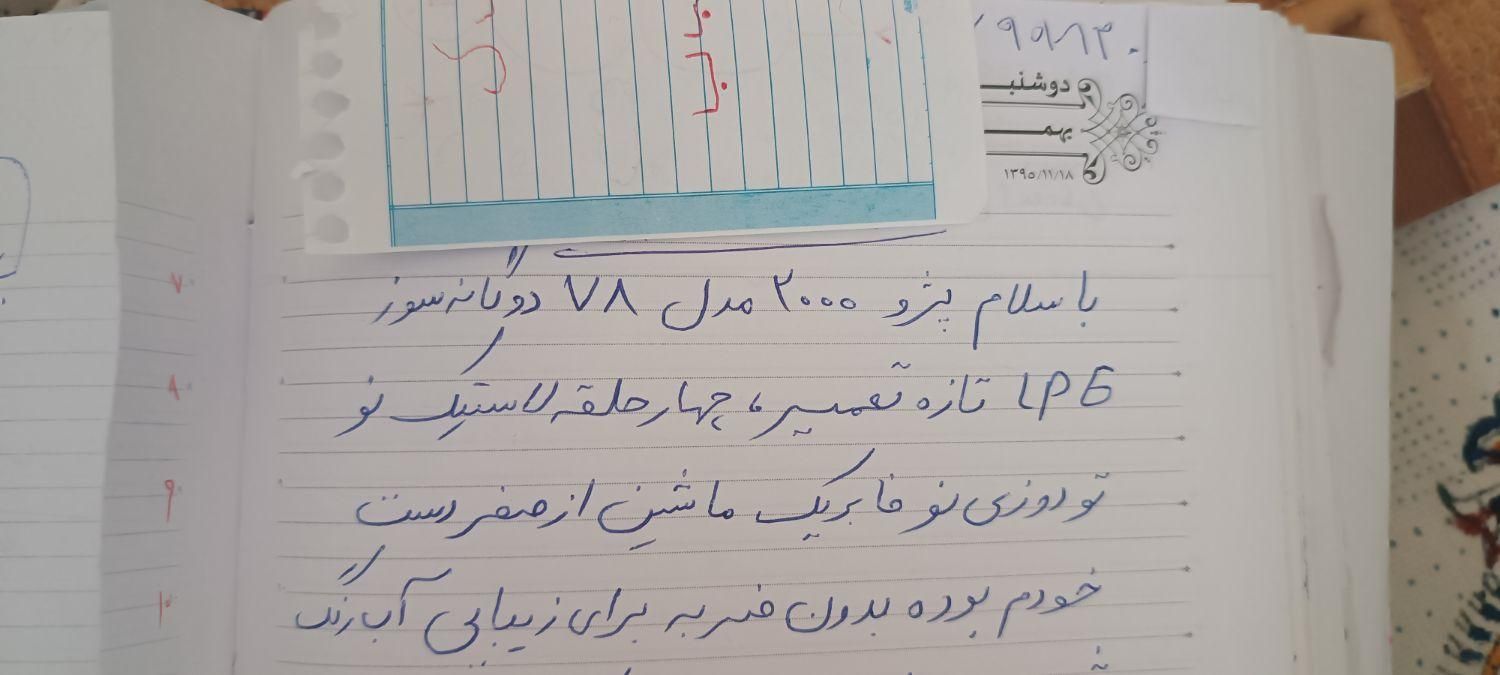 دوشنبـ
بهمـ
۱۳۹۵/۱۱/۱۸
با سلام پژو ۲۰۰۰ مدل ۷۸ دوگانه سوز
LPG تازه تعمیر، چهار حلقه لاستیک نو
تو دوزی نو فابریک ماشین از صفر دست
خودم بوده بدون ضربه برای زیبایی آب رنگ
۷
۸
۹
۱۰